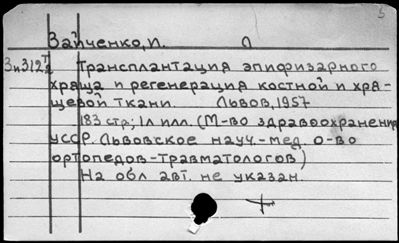 Зайченко, И. П
Зи312 Т2 Трансплантация эпифизарного
хряща и регенерация костной и хря-
щевой ткани. Львов, 1957
183 стр; 1л илл. (М-во здравоохранения
УССР. Львовское науч.-мед. о-во
ортопедов-травматологов)
На обл авт. не указан.